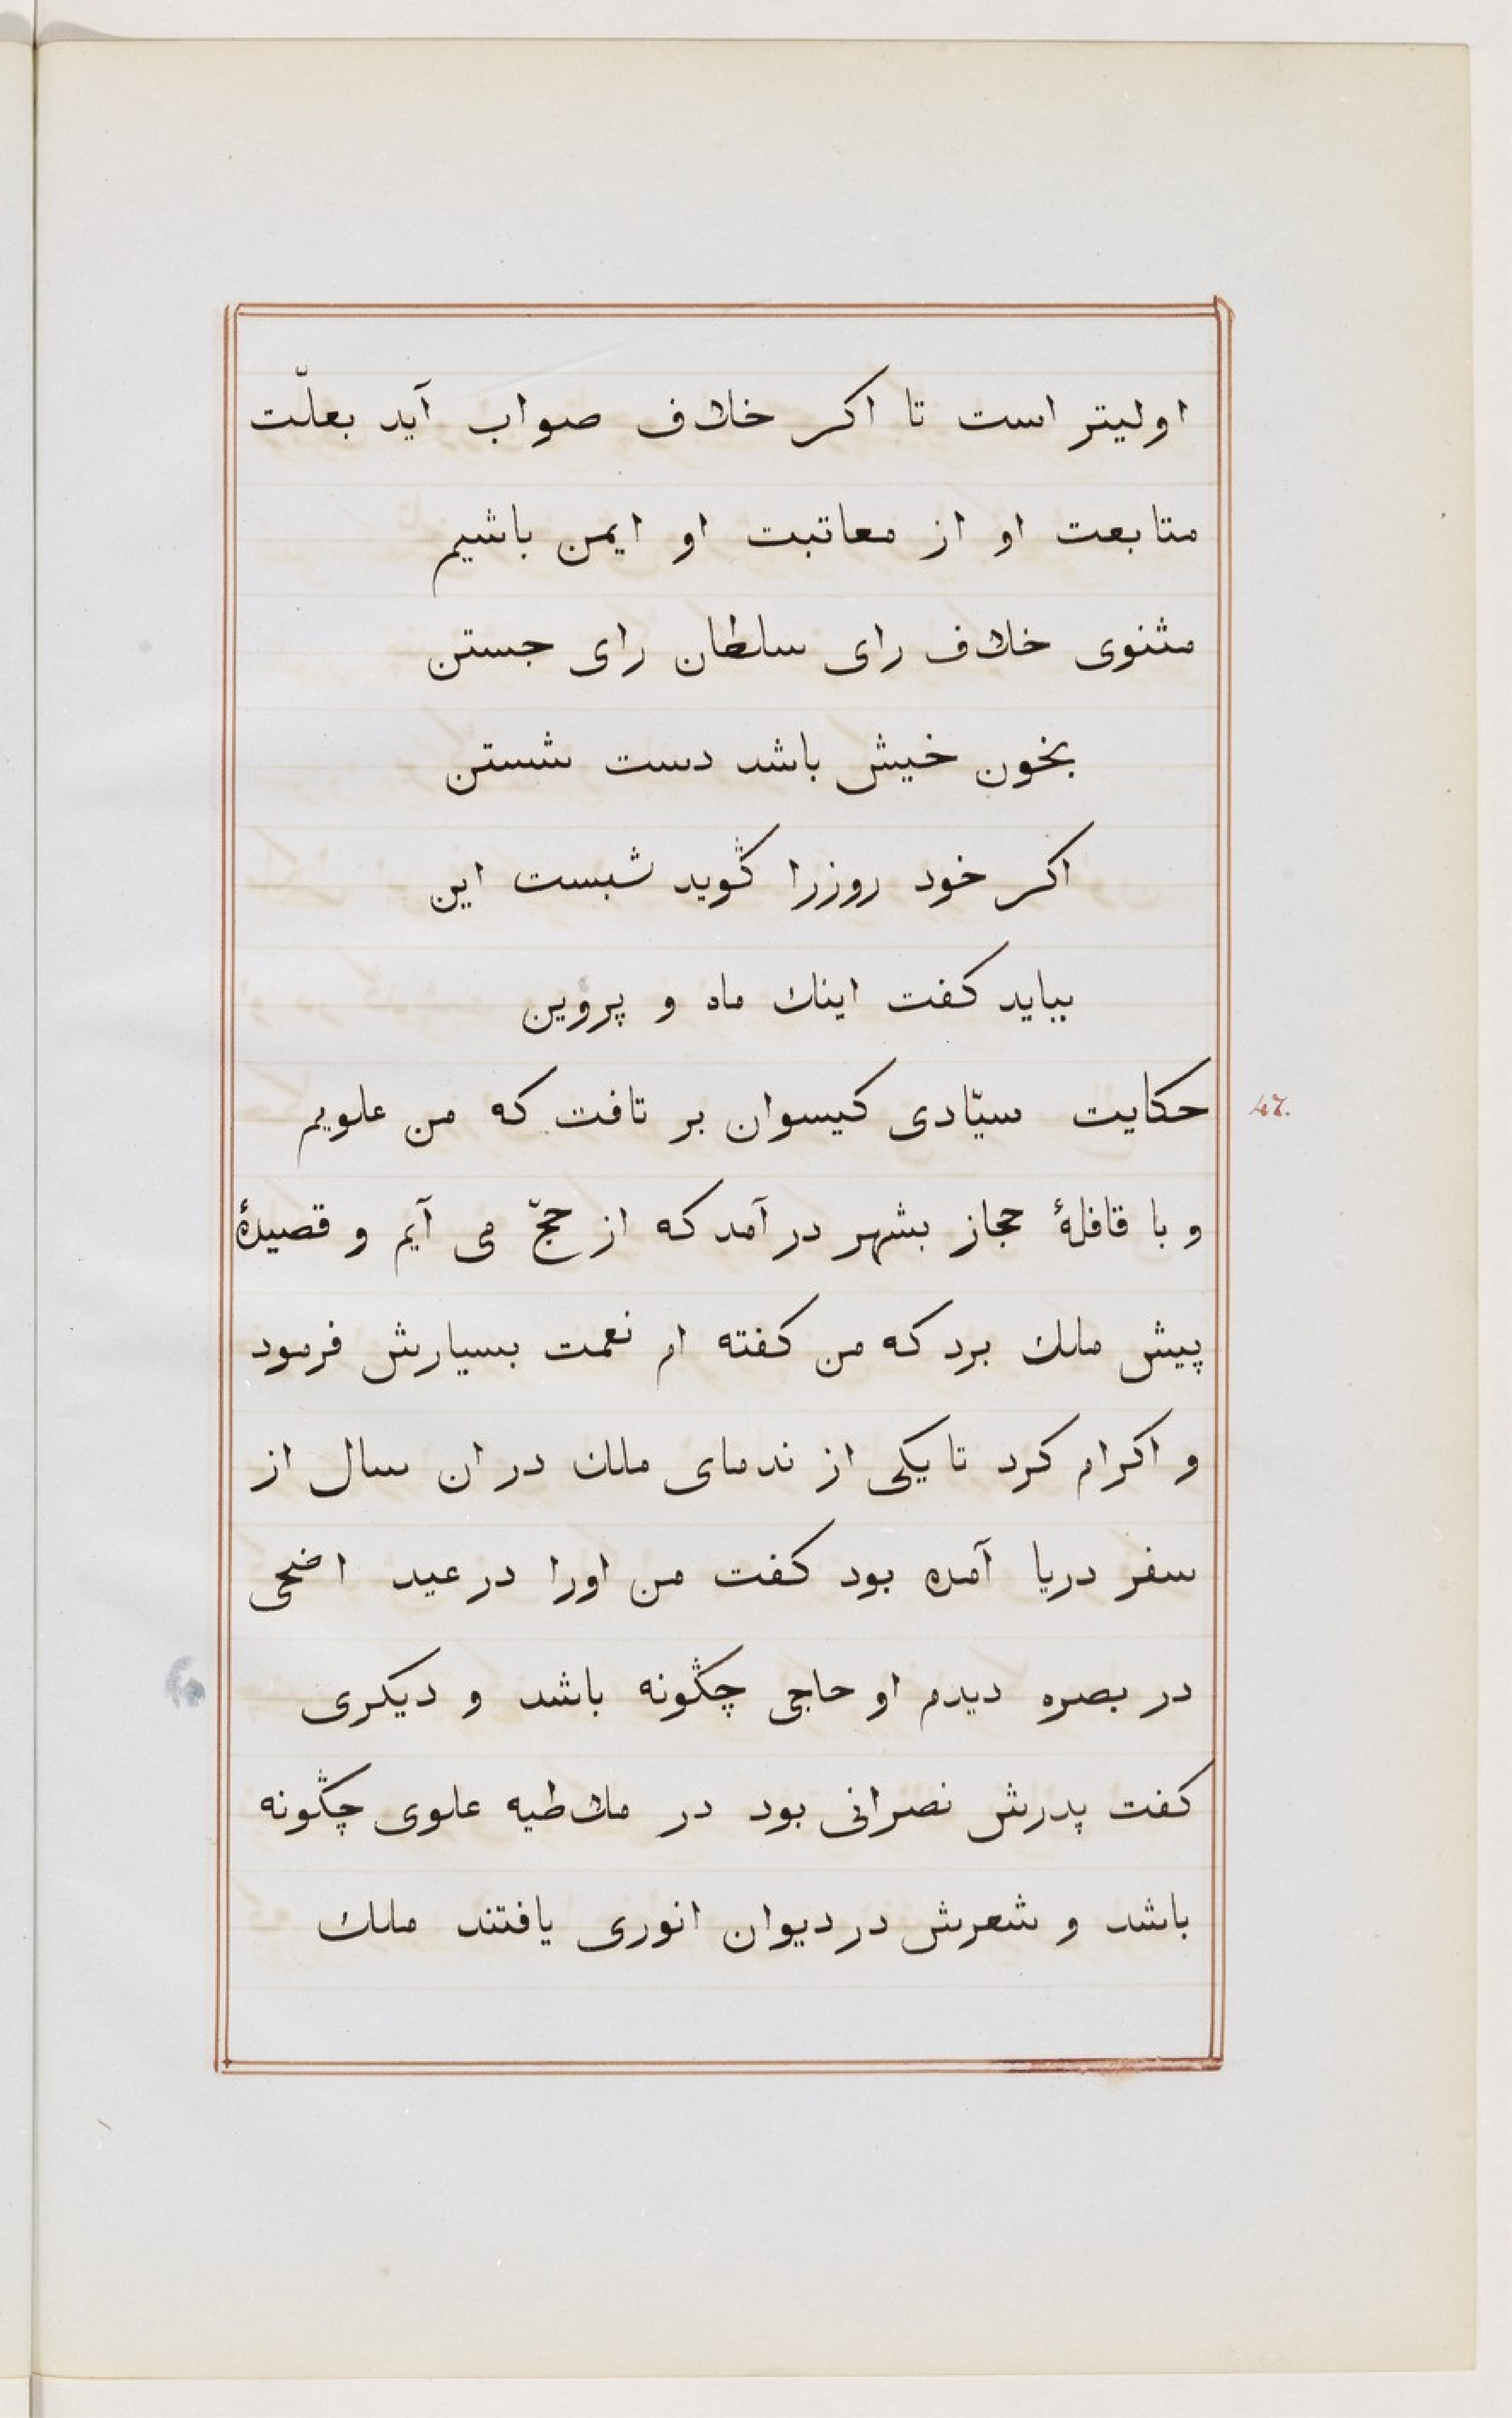 اولیتر است تا اکر خلاف صواب آید بعلّت
متابعت او از معاتبت او ایمن باشیم
مثنوی خلاف رای سلطان رای جستن
بخون خیش باشد دست شستن
اکر خود روزرا ڭوید شبست این
بباید کفت اینك ماه و پروین
حکایت سیّادی کیسوان بر تافت که من علویم
47.
و با قافلهٔ حجاز بشهر در آمد که از حجّ می آیم و قصیدهٔ
پیش ملك برد که من کفته ام نعمت بسیارش فرمود
و اکرام کرد تا یکی از ندمای ملك در ان سال از
سفر دریا آمده بود کفت من اورا در عید اضحی
در بصره دیدم او حاجی چڭونه باشد و دیکری
کفت پدرش نصرانی بود در ملاطیه علوی چڭونه
باشد و شعرش در دیوان انوری یافتند ملك